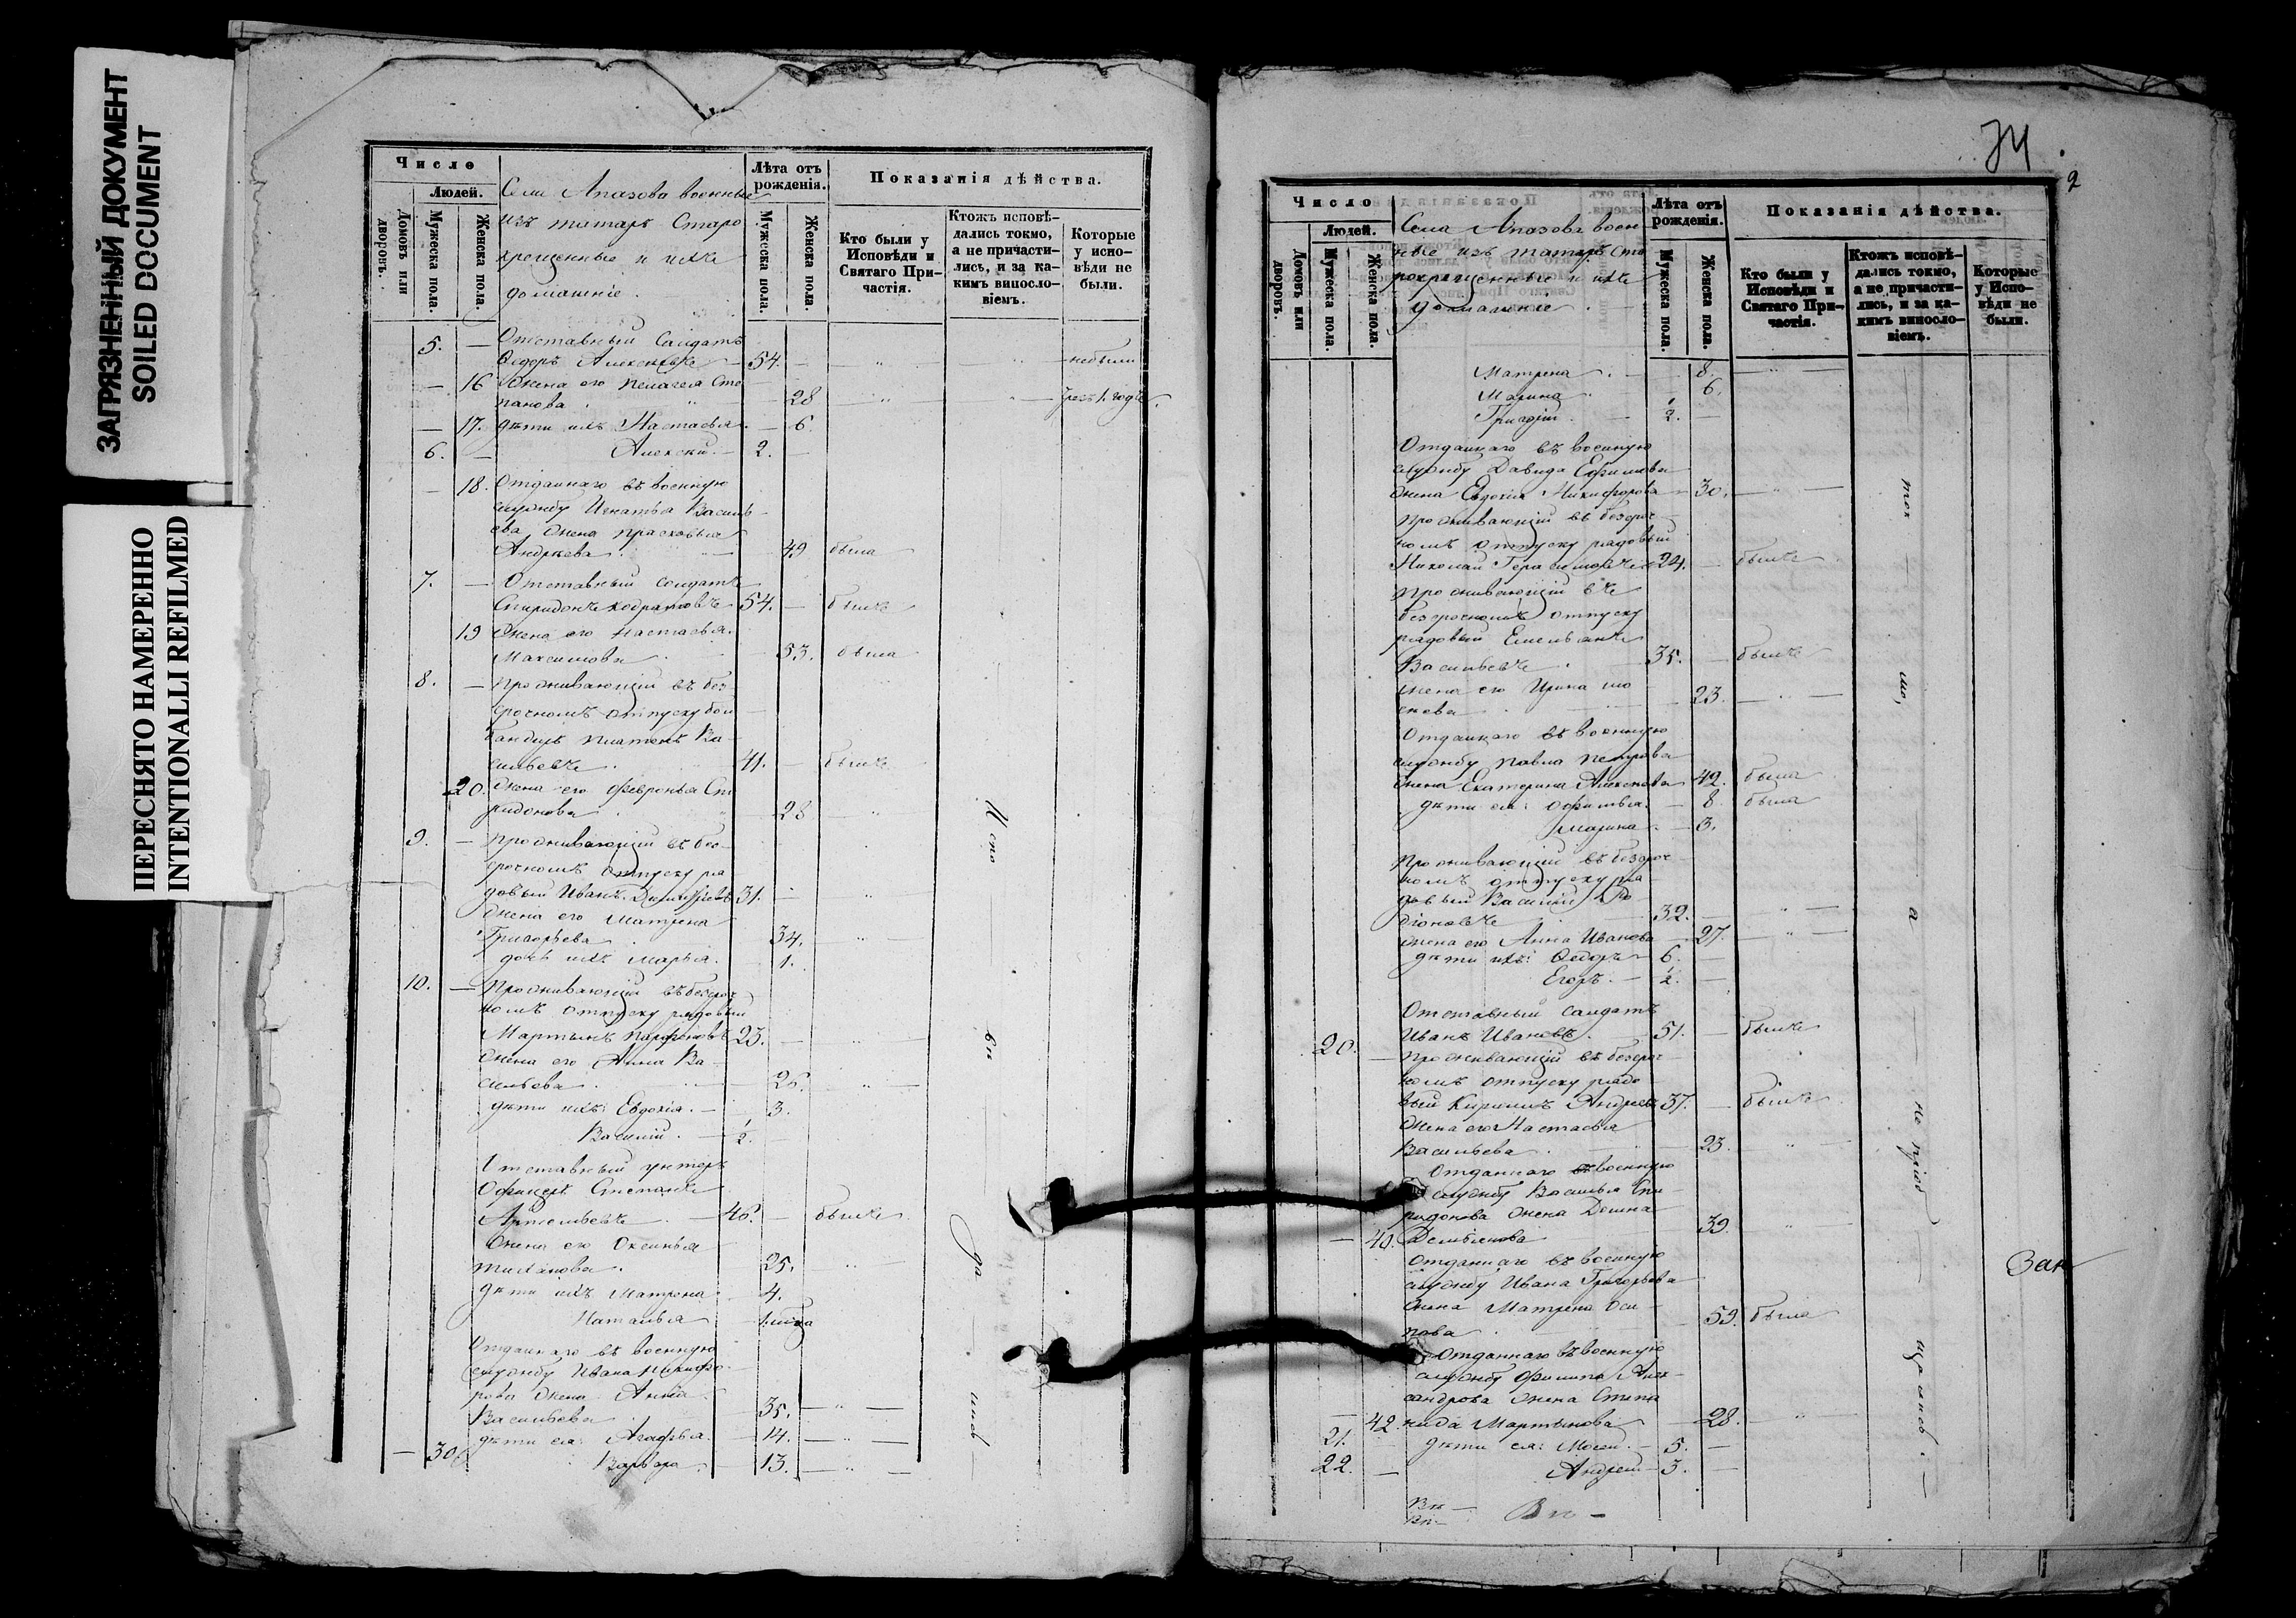 ЗАГРЯЗНЕННЫЙ ДОКУМЕНТ
SOILED DOCUMENT
ПЕРЕСНЯТО НАМЕРЕННО
INTENTIONALLI REFILMED
Число
Людей.
Домовъ или дворовъ.
Мужеска пола.
Женска пола.
Села Апазова военные
изъ татаръ Старо
крещенные и ихъ
домашніе.
Лѣта отъ рожденія.
Мужеска пола.
Женска пола.
Показанія дѣйства.
Кто были у Исповѣди и Святаго Причастія.
Ктожъ исповѣдались токмо, а не причастились, и за какимъ винословіемъ.
Которые у исповѣди не были.
5. — Отставный Солдатъ
Ѳедоръ Алексѣевъ — 54. — " — " — небыли
— 16 Жена его Пелагея Сте
панова — 28 — " — " — 1. годъ
— 17. дѣти ихъ Настасья — 6.
6. — Алексѣй — 2. —
— 18. Отданнаго въ военную
службу Игнатья Василь
ева жена Прасковья
Андреева — 49 была
7. — Отставный солдатъ
Спиридонъ — 54. — былъ
19 Жена его Настасья
Максимова 53. была
8. — Проживающій въ без
срочномъ отпуску бом
бандиръ Платонъ Ва
сильевъ 41. — былъ
20. Жена его Февронья Спи
ридонова 28 "
9. — Проживающій въ без
срочномъ отпуску ря
довый Иванъ Димитріевъ 31. — "
Жена его Матрена
Григорьева 34. "
дочь ихъ Марья 1.
10. — Проживающій въ безсроч
номъ отпуску рядовый
Мартынъ Парфеновъ 23. — "
Жена его Анна Ва
сильева 26. "
дѣти ихъ: Евдокія — 3.
Василій — ½.
Отставный унтеръ
Офицеръ Степанъ
46. — былъ
Жена его Оксинья
25. "
дѣти ихъ Матрена 4.
Наталья
Отданнаго въ военную
службу Ивана Никифо
рова жена Анна
Васильева 35. — " —
дѣти ея: Агафья 14. — " —
— 30. Варвара 13. — " —
Испо
вѣ
да
лись
74
2
Число
Людей.
Домовъ или дворовъ.
Мужеска пола.
Женска пола.
Села Апазова воен
ные изъ татаръ Ста
рокрещенные и ихъ
домашніе
Лѣта отъ рожденія.
Мужеска пола.
Женска пола.
Показанія дѣйства.
Кто были у Исповѣди и Святаго Причастія.
Ктожъ исповѣдались токмо, а не причастились, и за какимъ винословіемъ.
Которые у Исповѣди не были.
Матрена 8. — " —
Марина 6.
Григорій ½. —
Отданнаго въ военную
службу Давида Ефимова
жена Евдокія Никифорова 30. — " —
Проживающій въ безсроч
номъ отпуску рядовый
Николай Герасимовъ 24. — былъ
Проживающій въ
безсрочномъ отпуску
рядовый Емельянъ
Васильевъ 35. — былъ
жена его Ирина
23. — " —
Отданнаго въ военную
службу Павла Петрова
жена Екатерина Алексѣева 42. была
дѣти ея: 8. была
Марина — 3.
Проживающій въ безсроч
номъ отпуску ря
довый Василій Ро
діоновъ 32. — " —
Жена его Анна Иванова 27. — " —
дѣти ихъ: Ѳедоръ 6. —
Егоръ — ½. —
Отставный солдатъ
Иванъ Ивановъ 51. — былъ
20. — Проживающій въ безсроч
номъ отпуску рядо
вый Кирилъ Андреевъ 37. — былъ
Жена его Настасья
Васильева 23. "
Отданнаго въ военную
службу Василья Спи
ридонова жена
— 40. 39. "
Отданнаго въ военную
службу Ивана Григорьева
жена Матрена Оси
пова 59. была
Отданнаго въ военную
службу Филипа Алек
сандрова жена Степа
— 42. нида Мартынова 28. — " —
21. дѣти ея: Мосей — 5. —
22. — Андрей — 3. —
ток
мо,
а
не